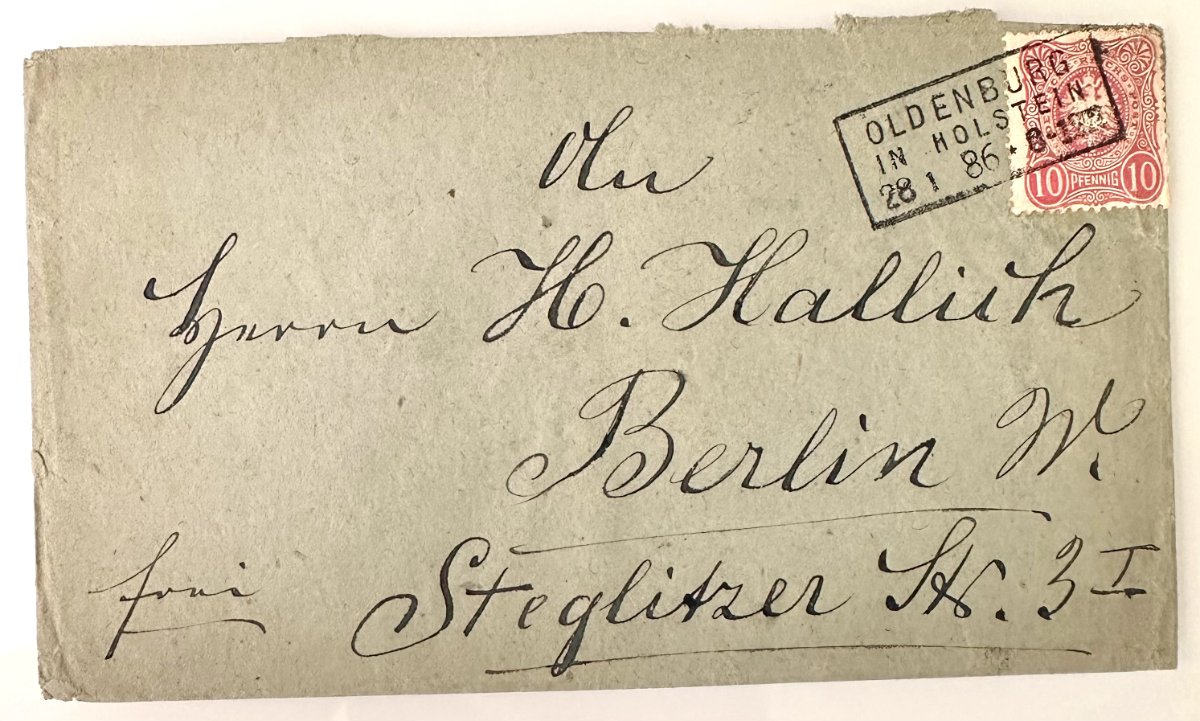 An
Herrn H. Hallich
Berlin W.
Steglitzer Str. 3 I
frei
OLDENBURG
IN HOLSTEIN
28 1 86 * 8-12V
10 PFENNIG 10